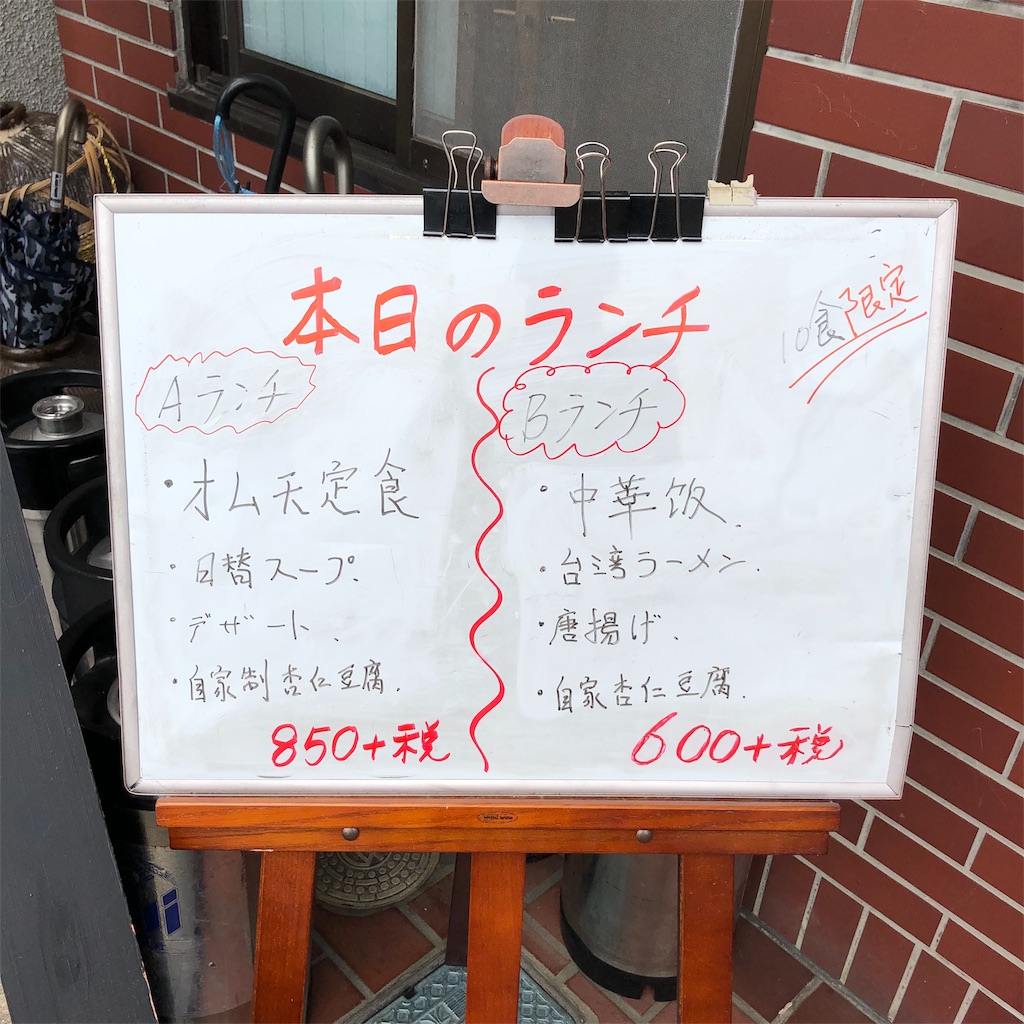 本日のランチ
10食限定
Aランチ
・オム天定食
・日替スープ.
・デザート.
・自家制杏仁豆腐.
850+税
Bランチ
・中華饭.
・台湾ラーメン.
・唐揚げ.
・自家杏仁豆腐.
600+税